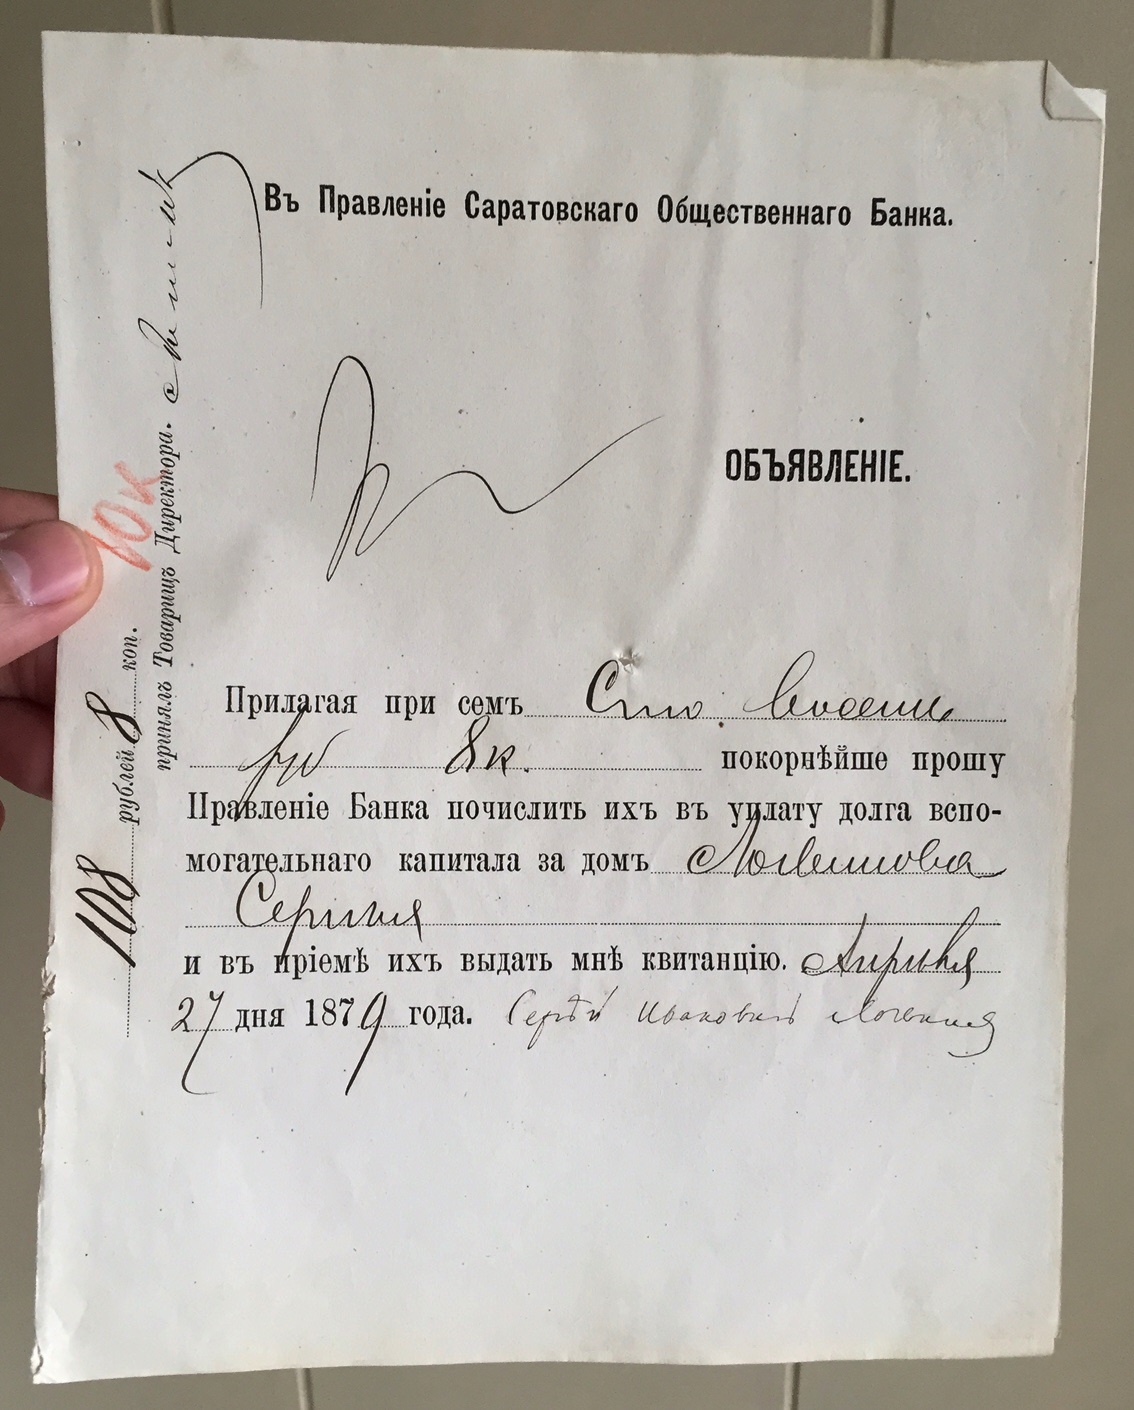 Въ Правленіе Саратовскаго Общественнаго Банка.
ОБЪЯВЛЕНІЕ.
Прилагая при семъ Сто восемь
ру 8 к. покорнѣйше прошу
Правленіе Банка почислить ихъ въ уплату долга вспо-
могательнаго капитала за домъ
Сергѣя
и въ пріемѣ ихъ выдать мнѣ квитанцію. Апрѣля
27 дня 1879 года. Сергѣй Ивановичъ
108 рублей 8 коп.
принялъ Товарищъ Директора.
10 к